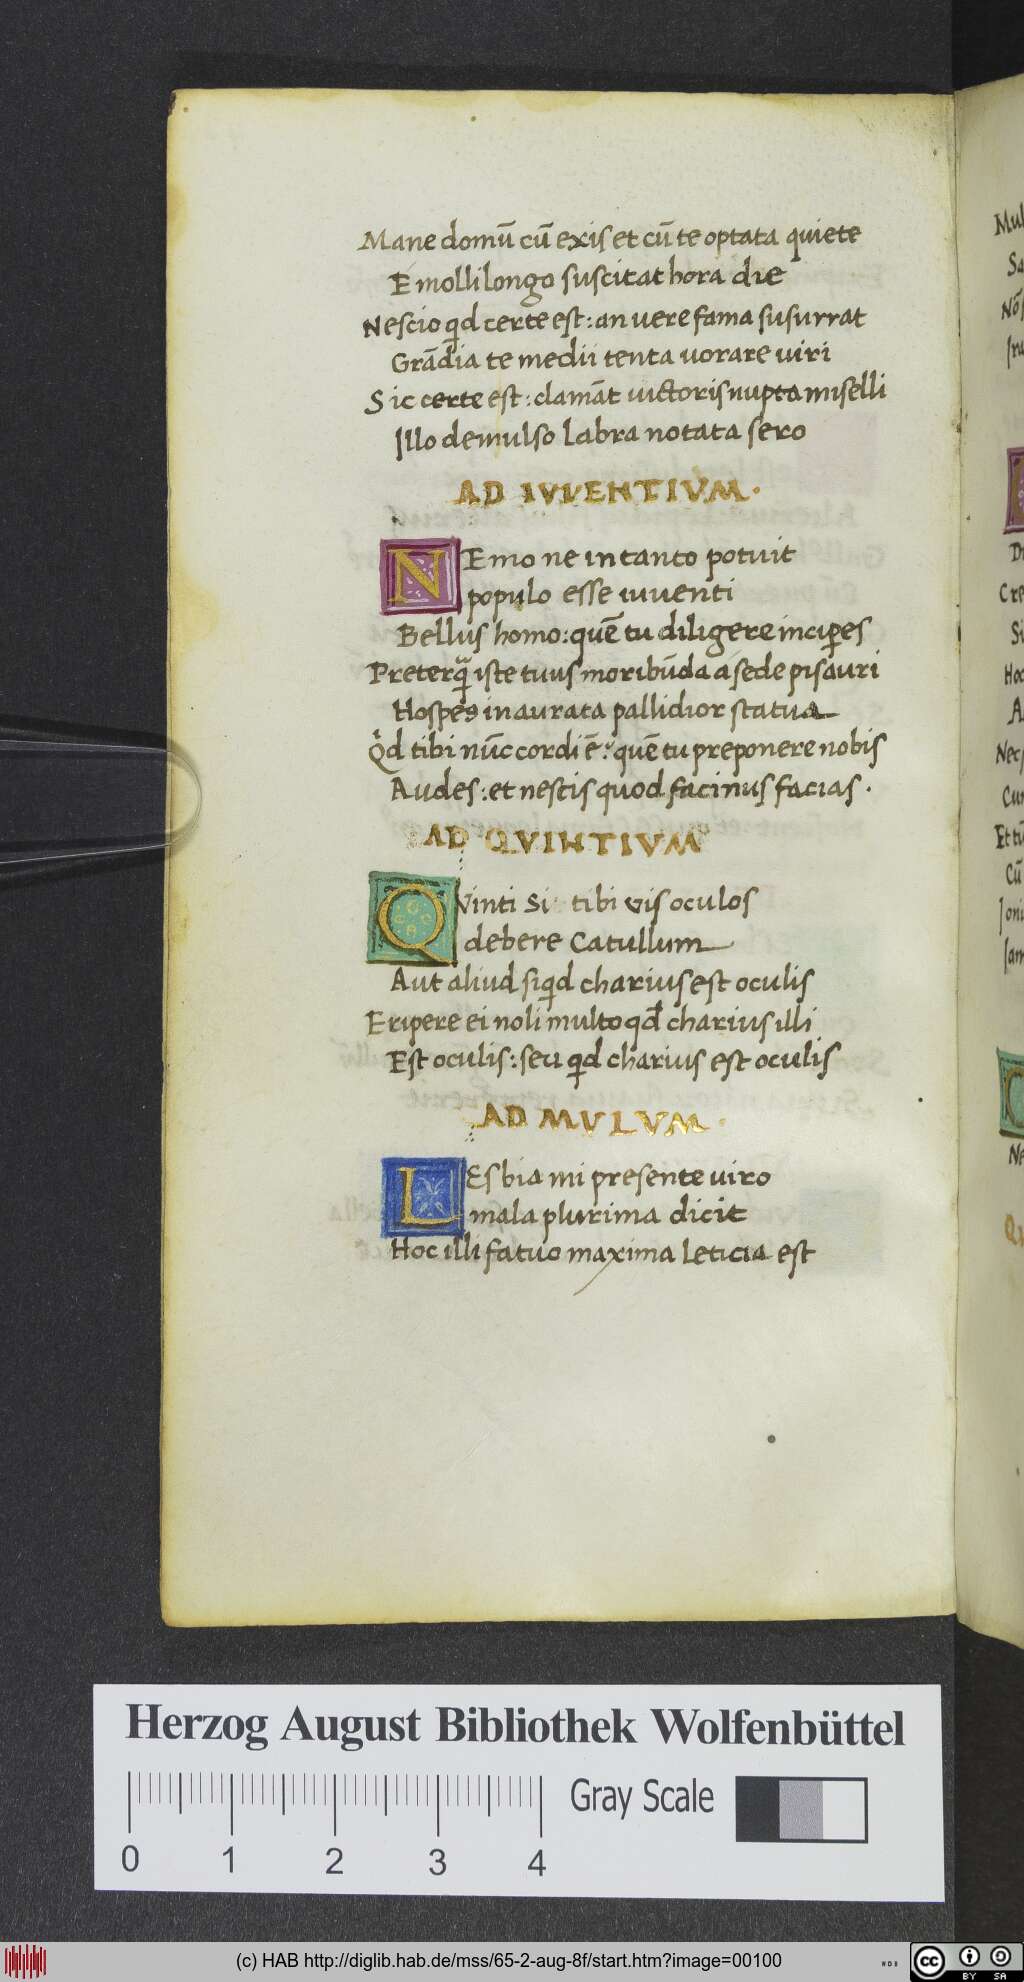 Mane domū cū exis et cū te optata quiete
E molli longo suscitat hora die
Nescio qd certe est: an vere fama susurrat
Grādia te medii tenta vorare viri
Sic certe est: clamāt victoris nupta miselli
Illo demulso labra notata sero
AD IVVENTIVM·
NEmo ne in tanto potuit
populo esse iuventi
Bellus homo: quē tu diligere inciperes
Preterquā iste tuus moribūda a sede pisauri
Hospes inaurata pallidior statua
Qd tibi nūc cordi ē: quē tu preponere nobis
Audes: et nescis quod facinus facias·
AD QVINTIVM
QVinti Si tibi vis oculos
debere Catullum
Aut aliud siqd charius est oculis
Eripere ei noli multo qd charius illi
Est oculis: seu qd charius est oculis
AD MVLVM·
LEsbia mi presente viro
mala plurima dicit
Hoc illi fatuo maxima leticia est
Herzog August Bibliothek Wolfenbüttel
0 1 2 3 4 Gray Scale
(c) HAB http://diglib.hab.de/mss/65-2-aug-8f/start.htm?image=00100
cc BY SA